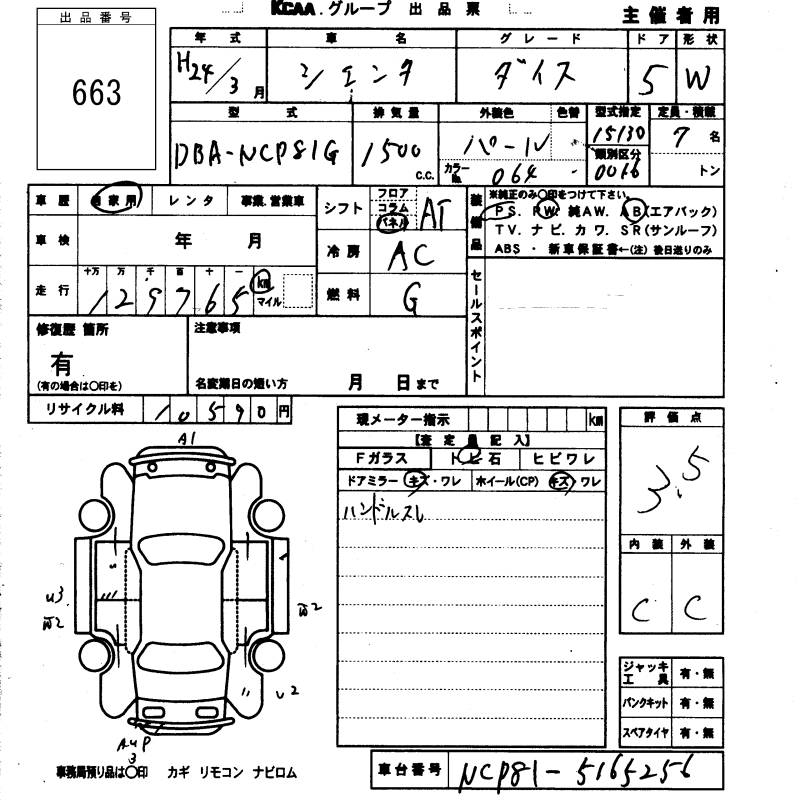 KCAA.グループ 出品票
主催者用
出品番号
663
年式 車名 グレード ドア 形状
H24/3月 シエンタ ダイス 5 W
型式 排気量 外装色 色替 型式指定 定員・積載
DBA-NCP81G 1500 C.C. パール 15130 7名
カラーNo. 064 類別区分 0016 トン
車歴 自家用 レンタ 事業.営業車
車検 年 月
走行 十万 万 千 百 十 一
129765 km マイル
シフト フロア コラム パネル AT
冷房 AC
燃料 G
装備品 ※純正のみ○印をつけて下さい。
PS. PW. 純AW. AB(エアバック)
TV. ナビ. カワ. SR(サンルーフ)
ABS・新車保証書←(注) 後日送りのみ
セールスポイント
修復歴 箇所
有
(有の場合は○印を)
注意事項
名変期日の短い方 月 日まで
リサイクル料 10590円
現メーター指示 km
【査定員記入】
Fガラス トビ石 ヒビワレ
ドアミラー キズ・ワレ ホイール(CP) キズ・ワレ
ハンドルスレ
評価点
3.5
内装 外装
C C
A1
U3
2
2
U2
3
ジャッキ 工具 有・無
パンクキット 有・無
スペアタイヤ 有・無
事務局預り品は○印 カギ リモコン ナビロム
車台番号 NCP81-5165256